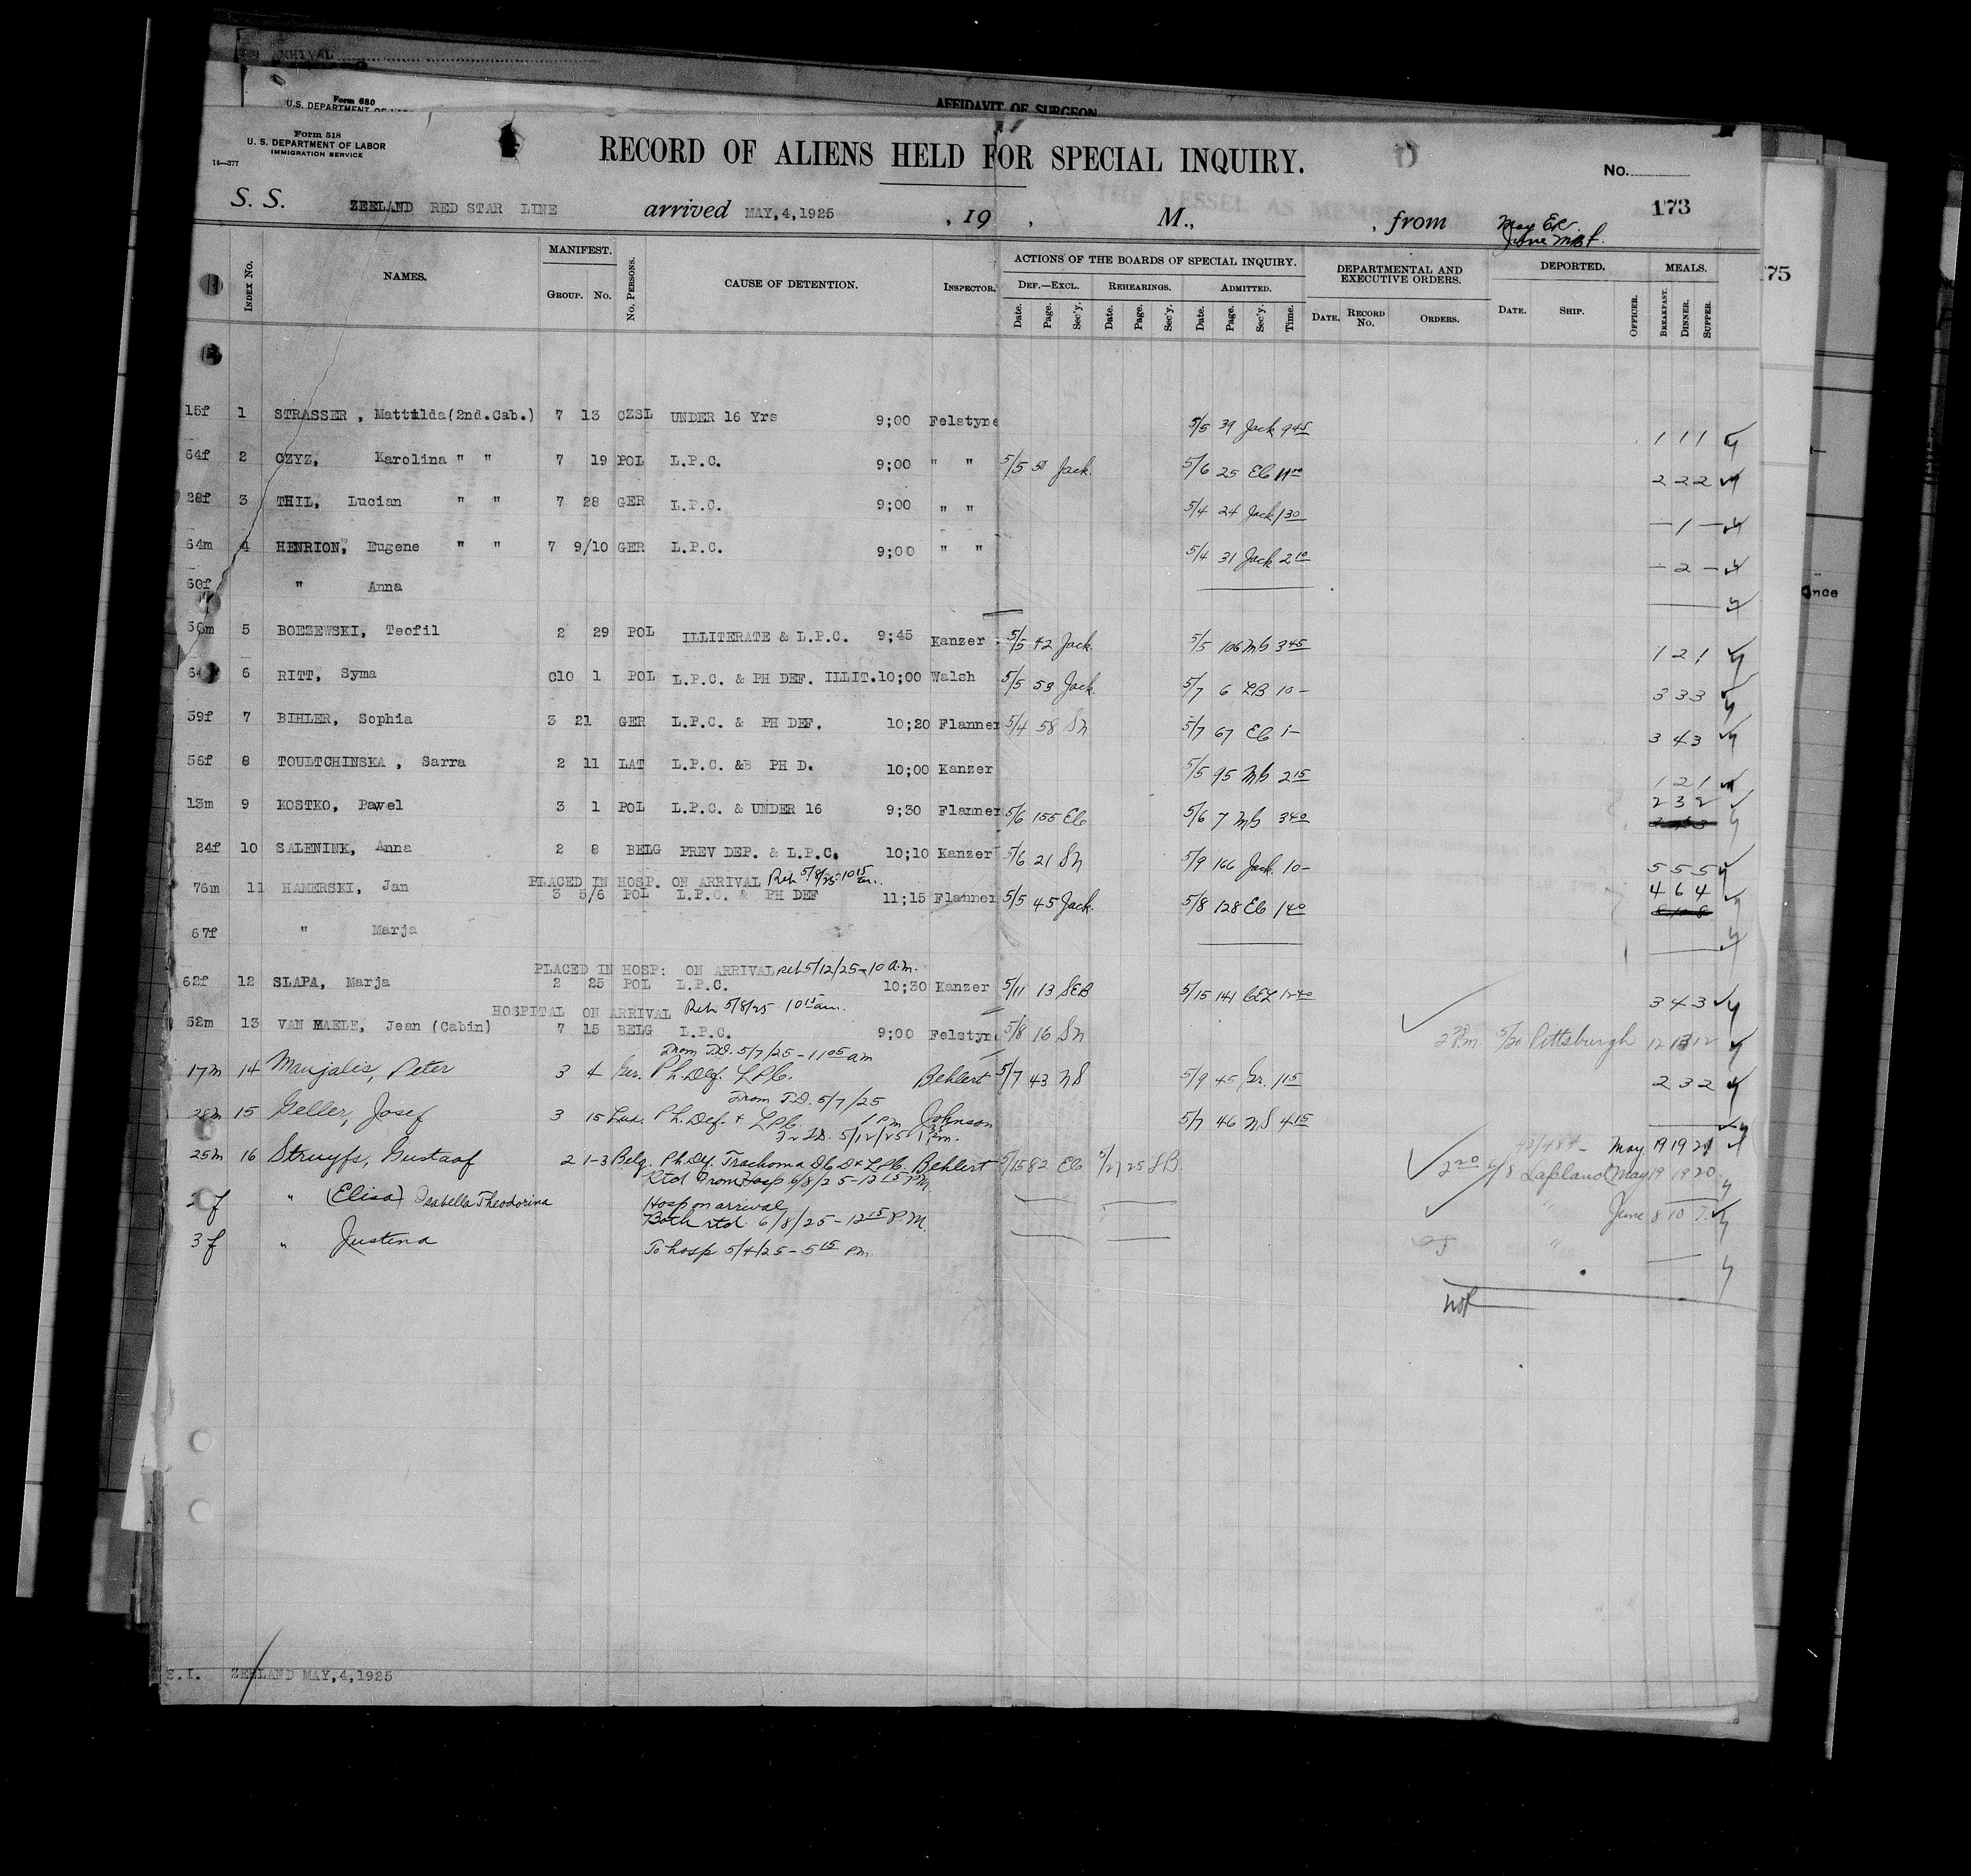 ARRIVAL
Form 680
U.S. DEPARTMENT OF LABOR
AFFIDAVIT OF SURGEON
Form 518
U. S. DEPARTMENT OF LABOR
IMMIGRATION SERVICE
14—377
RECORD OF ALIENS HELD FOR SPECIAL INQUIRY.
No.
173
S. S. ZEELAND RED STAR LINE arrived MAY,4,1925 , 19 , M., , from
75
INDEX No. NAMES. MANIFEST. GROUP. No. No. PERSONS. CAUSE OF DETENTION. INSPECTOR. ACTIONS OF THE BOARDS OF SPECIAL INQUIRY. DEPARTMENTAL AND EXECUTIVE ORDERS. DEPORTED. MEALS.
DEF.—EXCL. REHEARINGS. ADMITTED.
Date. Page. Sec'y. Date. Page. Sec'y. Date. Page. Sec'y. Time. DATE. RECORD No. ORDERS. DATE. SHIP. OFFICER. BREAKFAST. DINNER. SUPPER.
15f 1 STRASSER , Mattilda(2nd.Cab.) 7 13 CZSL UNDER 16 Yrs 9;00 Felstyne 5/5 39 Jack 945 1 1 1
64f 2 CZYZ, Karolina " " 7 19 POL L.P.C. 9;00 " " 5/5 51 Jack. 5/6 25 EG 1100 2 2 2
28f 3 THIL, Lucian " " 7 28 GER L.P.C. 9;00 " " 5/4 24 Jack 130 — 1 —
64m 4 HENRION, Eugene " " 7 9/10 GER L.P.C. 9;00 " " 5/4 31 Jack 210 — 2 —
60f " Anna
56m 5 BOEZEWSKI, Teofil 2 29 POL ILLITERATE & L.P.C. 9;45 Kanzer 5/5 42 Jack. 5/5 106 MG 345 1 2 1
6 RITT, Syma C10 1 POL L.P.C. & PH DEF. ILLIT.10;00 Walsh 5/5 53 Jack. 5/7 6 LB 10 - 3 3 3
59f 7 BIHLER, Sophia 3 21 GER L.P.C. & PH DEF. 10;20 Flanner 5/4 58 Sn 5/7 67 EG 1- 3 4 3
56f 8 TOULTCHINSKA , Sarra 2 11 LAT L.P.C. &B PH D. 10;00 Kanzer 5/5 95 MG 215 1 2 1
13m 9 KOSTKO, Pavel 3 1 POL L.P.C. & UNDER 16 9;30 Flanner 5/6 155 EG 5/6 7 MG 340 2 3 2
24f 10 SALENINK, Anna 2 8 BELG PREV DEP. & L.P.C. 10;10 Kanzer 5/6 21 Sn 5/9 166 Jack. 10- 5 5 5
PLACED IN HOSP. ON ARRIVAL Reh 5/8/25 1015 am.
76m 11 HAMERSKI, Jan 3 5/6 POL L.P.C. & PH DEF 11;15 Flanner 5/5 45 Jack. 5/8 128 EG 140 4 6 4
67f " Marja
PLACED IN HOSP: ON ARRIVAL reh 5/12/25-10 a.m.
62f 12 SLAPA, Marja 2 25 POL L.P.C. 10;30 Kanzer 5/11 13 SEB 5/15 141 CEL 1240 3 4 3
HOSPITAL ON ARRIVAL Reh 5/8/25 1015 am.
52m 13 VAN MAELE, Jean (Cabin) 7 15 BELG L.P.C. 9;00 Felstyn 5/8 16 Sn 5/20 Pittsburgh 12 13 12
From T.D. 5/7/25 - 1105 am
17m 14 Manjalis, Peter 3 4 Ger. Ph. Def. LPC. Behlert 5/7 43 NS 5/9 45 Gr. 115 2 3 2
From T.D. 5/7/25
28m 15 Geller, Josef 3 15 Ph. Def. & LPC. 1 PM Johnson 5/7 46 NS 415
25m 16 Struyfs, Gustaaf 2 1-3 Belg. Ph. Def. Trachoma & LPC. Behlert 5/15 82 EG 5/27 25 SB May 19 19 21
Rtd from Hosp 6/8/25-1215 PM. 220 6/8 Lapland May 19 19 20
f " (Elisa) Isabella Theodorina Hosp on arrival " June 8 10 7
Both rtd. 6/8/25-1215 P.M.
3 f " Justina To hosp 5/4/25 - 515 PM "
S.I. ZEELAND MAY,4,1925